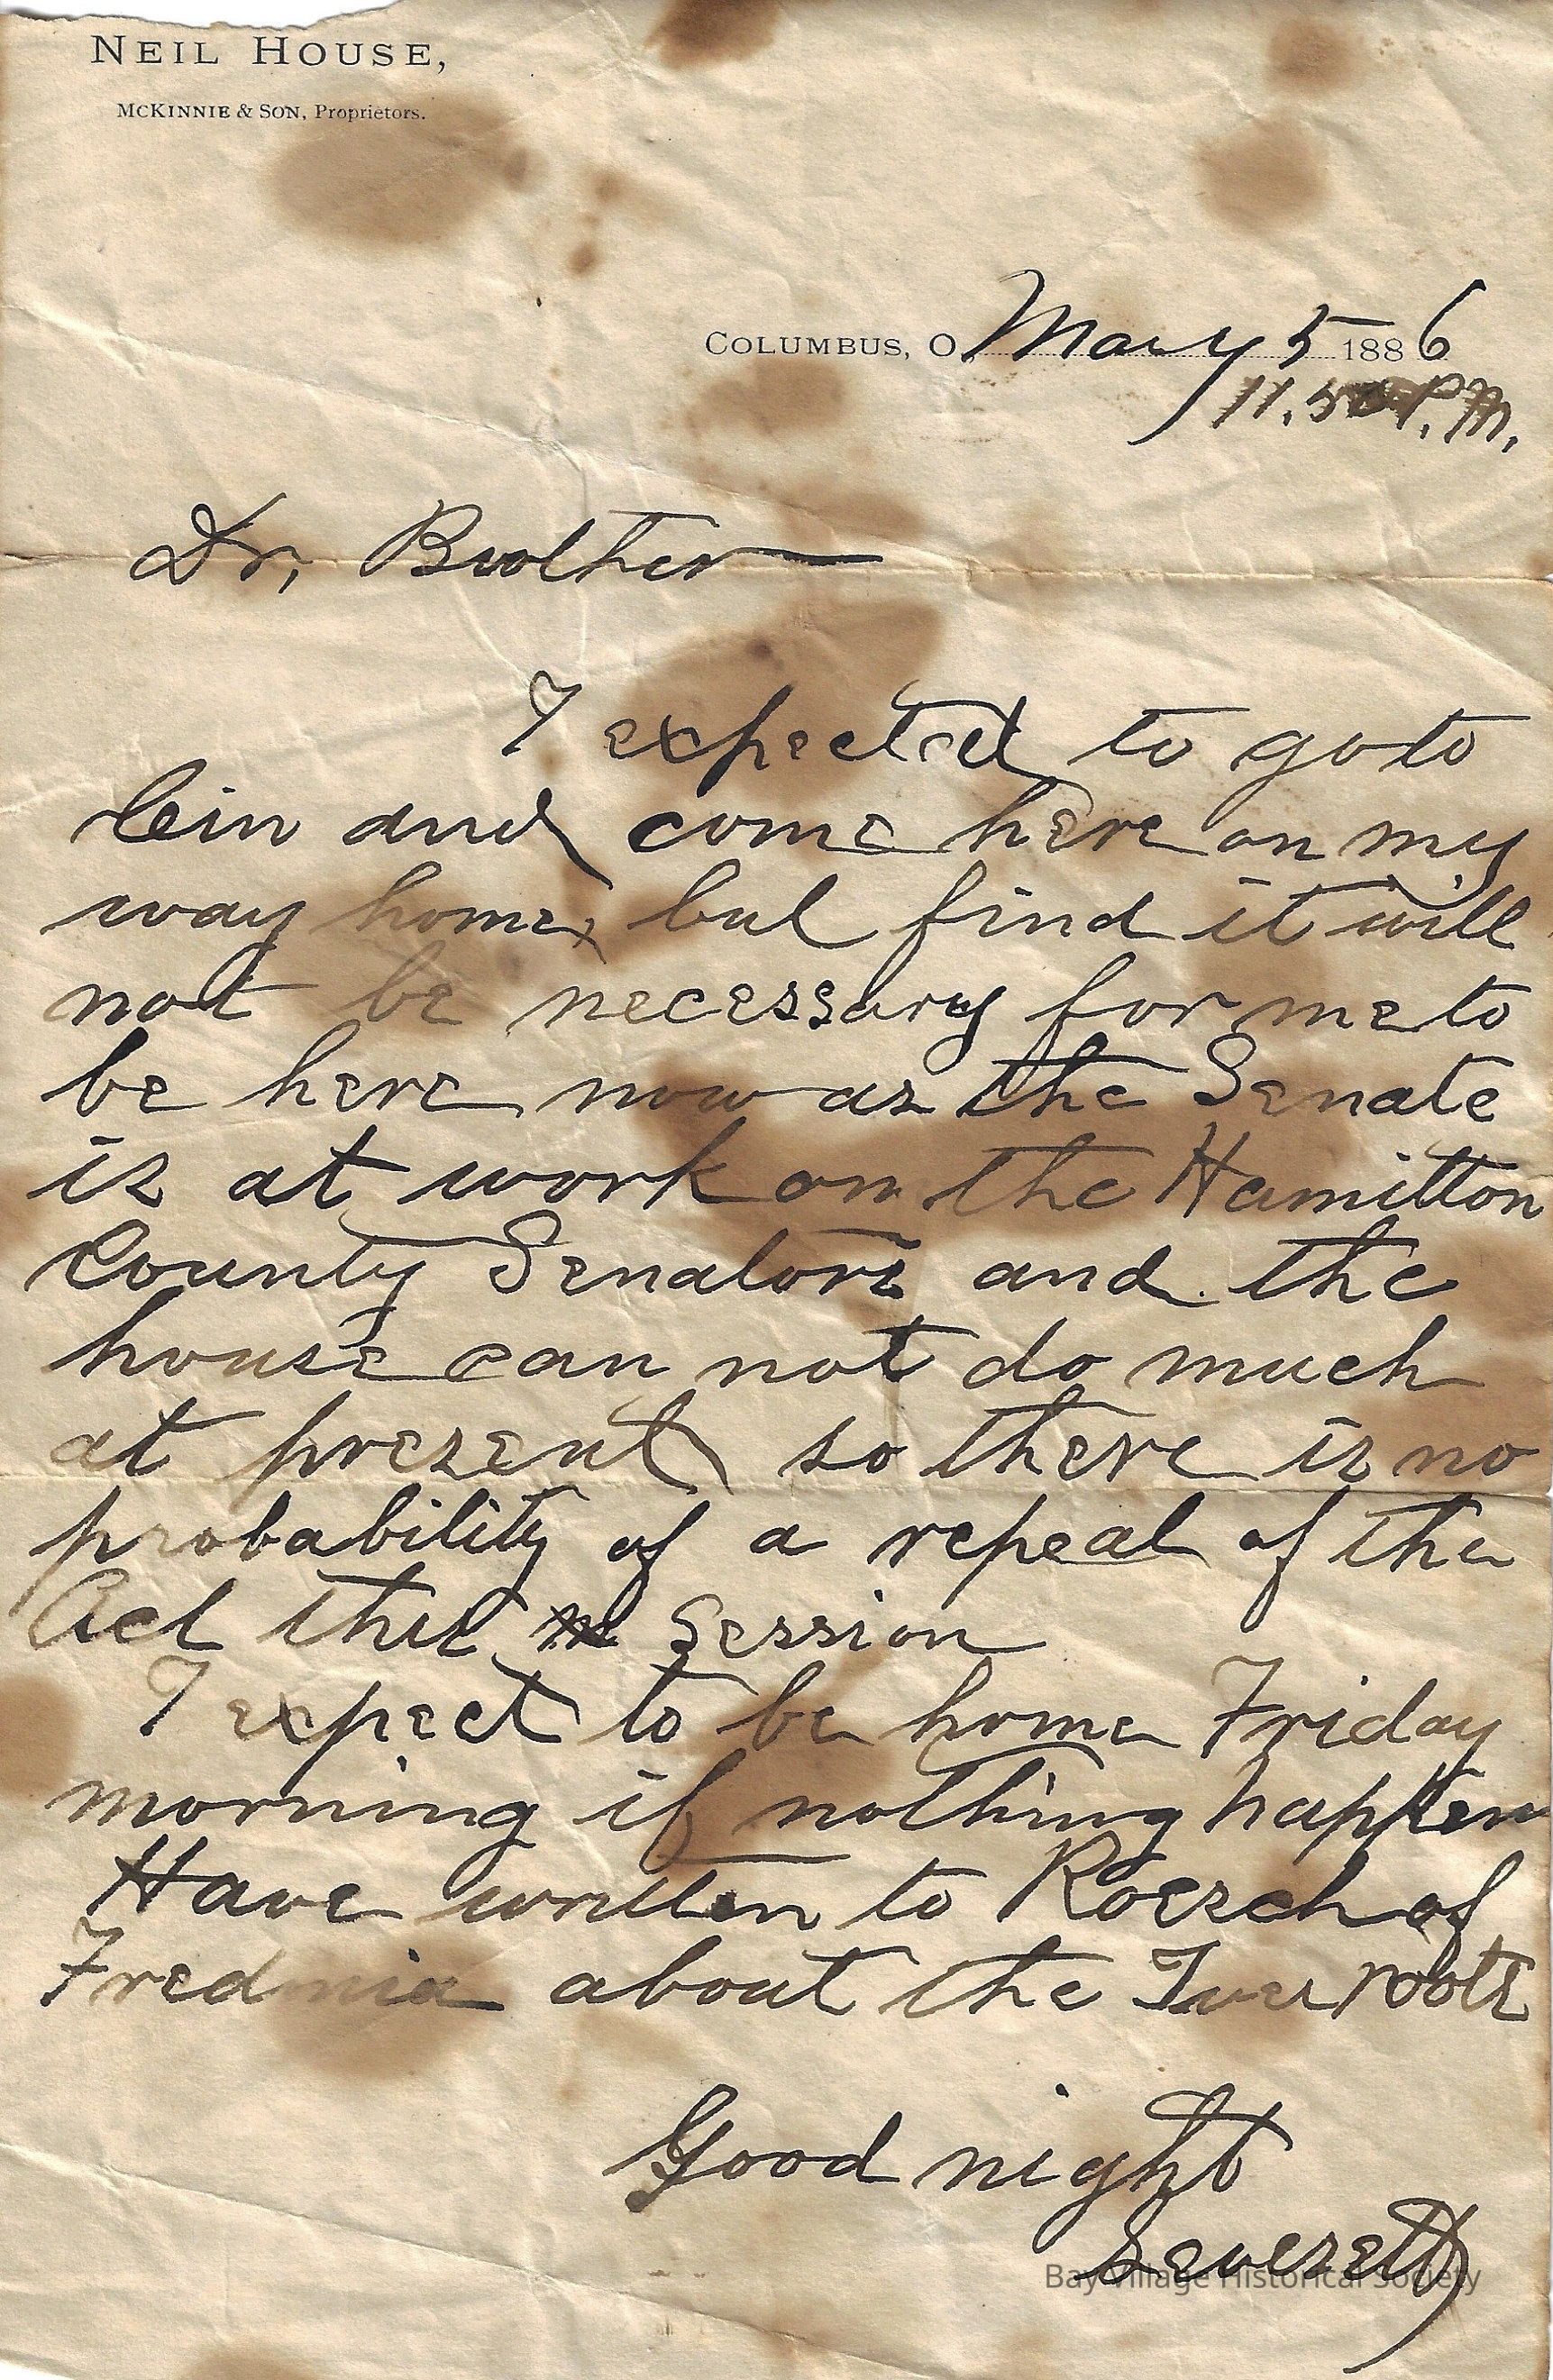 NEIL HOUSE,
MCKINNIE & SON, Proprietors.
COLUMBUS, O. May 5 1886
11.50 P.M.
Dr, Brother
I expected to go to
Cin and come here on my
way home, but find it will
not be necessary for me to
be here now as the Senate
is at work on the Hamilton
County Senators and the
house can not do much
at present so there is no
probability of a repeal of the
Act this Session
I expect to be home Friday
morning if nothing happen
Have written to Roesch of
Fredonia about the roots
Good night
Leverett
Bay Village Historical Society